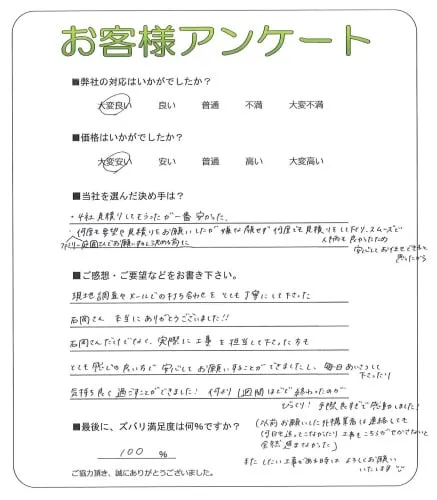 お客様アンケート
■弊社の対応はいかがでしたか？
大変良い　良い　普通　不満　大変不満
■価格はいかがでしたか？
大変安い　安い　普通　高い　大変高い
■当社を選んだ決め手は？
・4社見積りしてもらったが一番安かった。
・何度も要望や見積りをお願いしたが嫌な顔せず何度でも見積りをして下さり、スムーズで
さんでお願いすると決める前に
人柄も良かったため
安心してお任せできると
思ったから
■ご感想・ご要望などをお書き下さい。
現地調査やメールでの打ち合わせをとても丁寧にして下さった
石岡さん 本当にありがとうございました!!
石岡さんだけでなく、実際に工事を担当して下さった方も
とても感じの良い方で安心してお願いすることができましたし、毎日あいさつして
下さったり
気持ち良く過ごすことができました! 何より1週間ほどで終わったのが
びっくり! 手際良すぎで感動しました!
■最後に、ズバリ満足度は何%ですか？
100 %
(以前お願いした外構業者は連絡しても
何日も返ってこなかったり工事もこちらがせかさないと
全然進まなかった)
またしたい工事がある時はよろしくお願い
いたします
ご協力頂き、誠にありがとうございました。